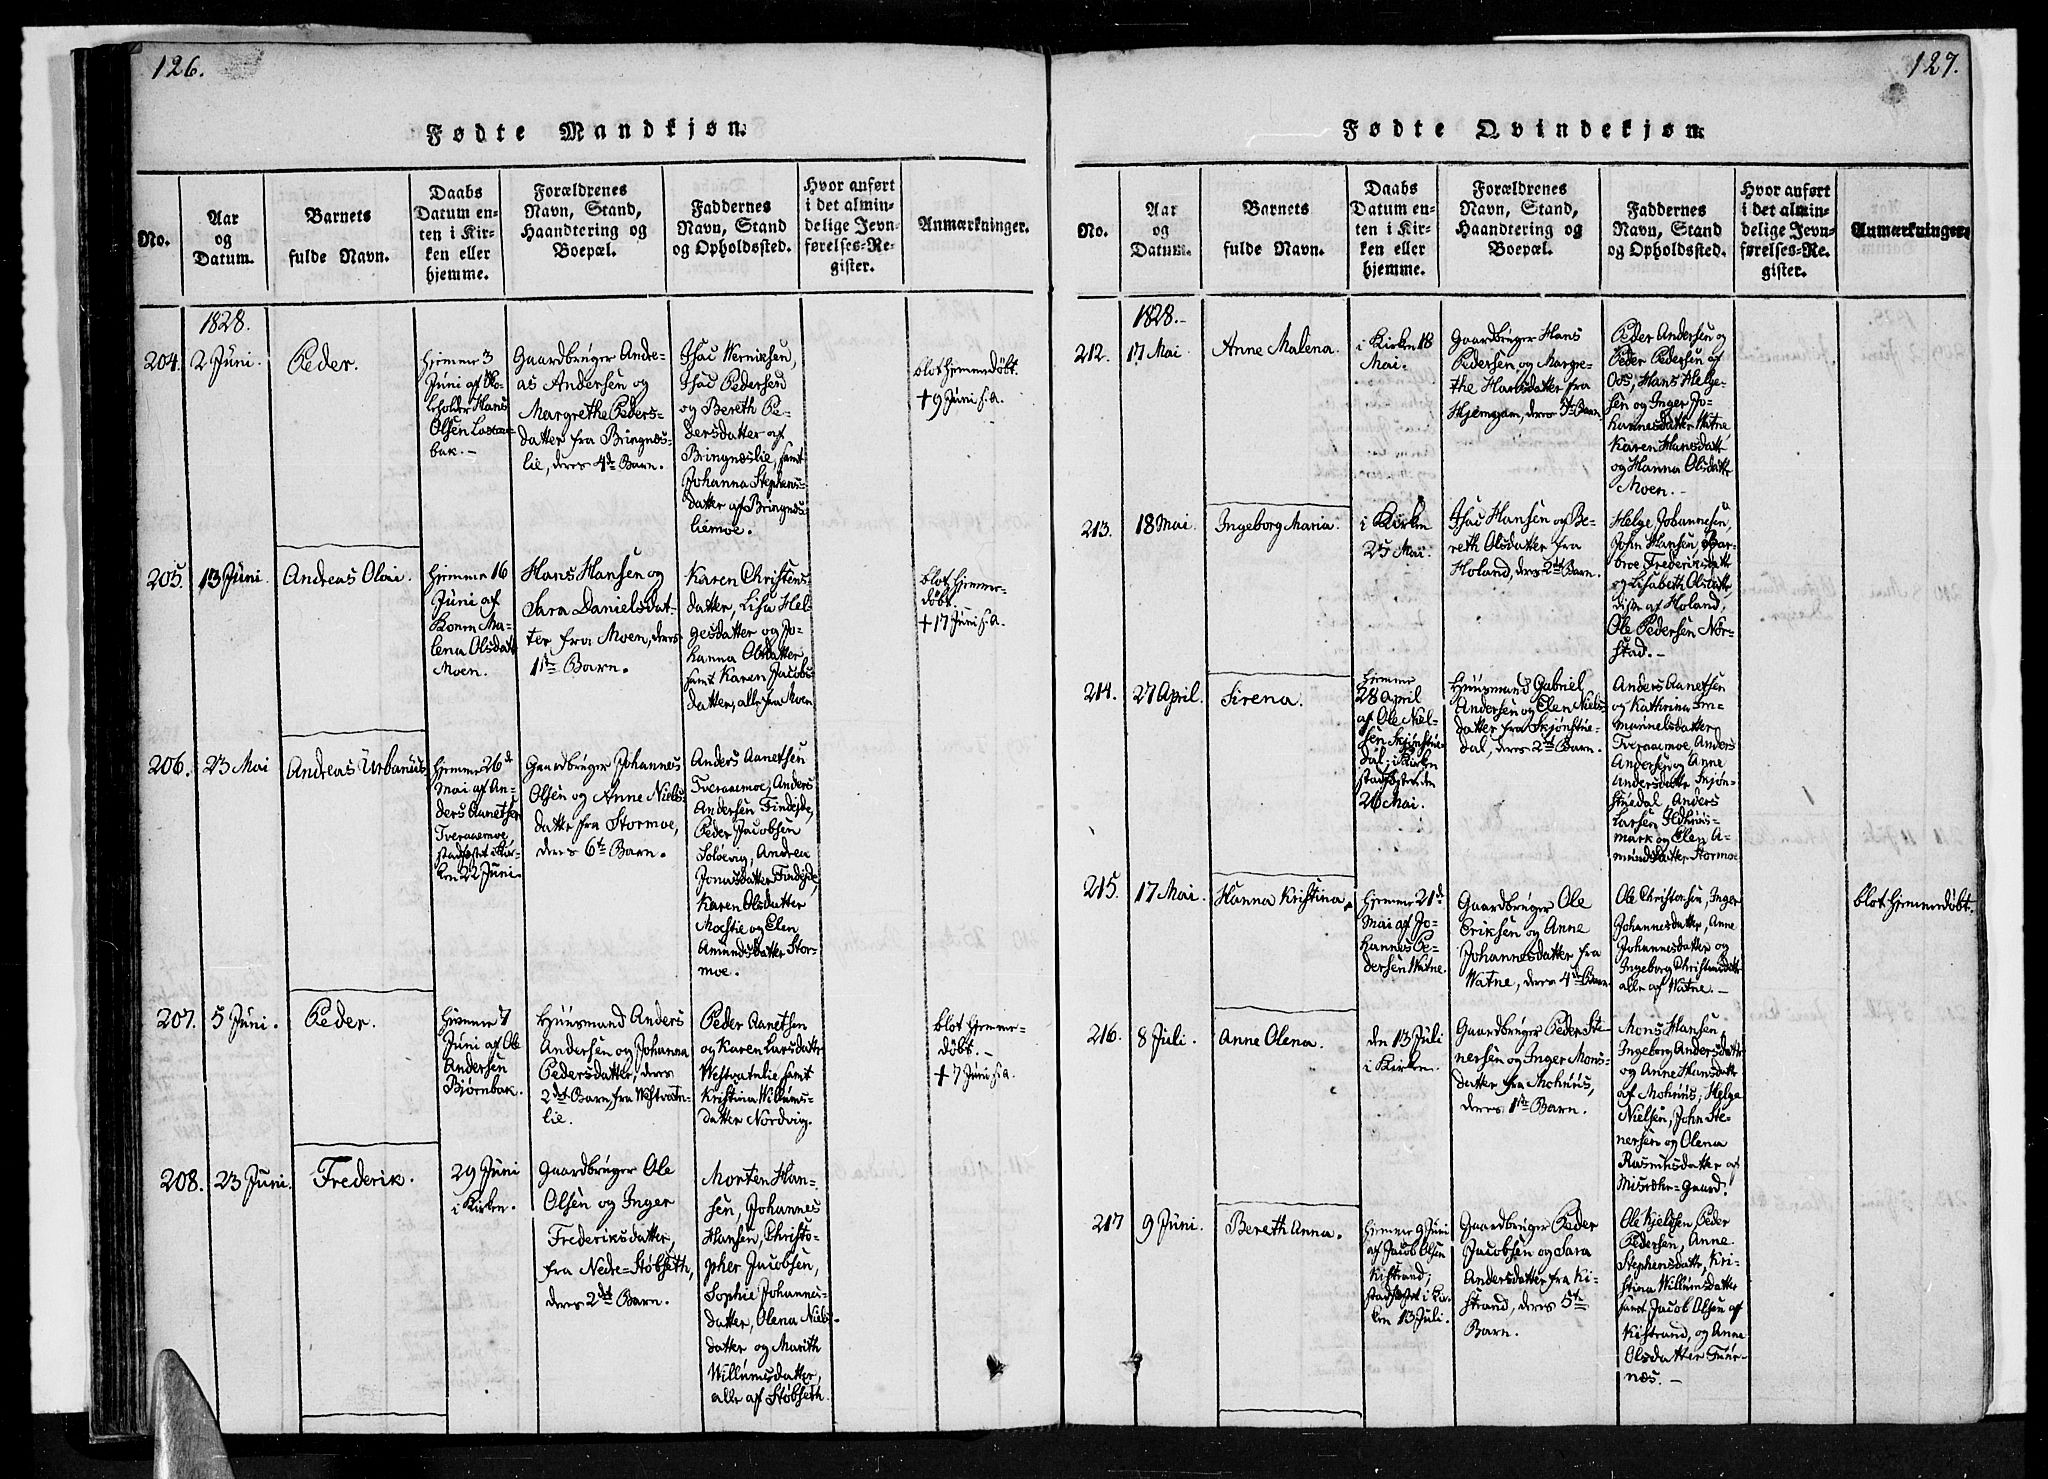 126.
Fødte Mandkjøn.
No.
Aar
og
Datum.
Barnets
fulde Navn.
Daabs
Datum en-
ten i Kir-
ken eller
hjemme.
Forældrenes
Navn, Stand,
Haandtering og
Boepæl.
Faddernes
Navn, Stand
og Opholdssted.
Hvor anført
i det almin-
delige Jevn-
førelses-Re-
gister.
Anmærkninger.
1828.
204.
2 Juni.
Peder.
Hjemme 3
Juni af
Hans
Olsen
bak.-
Gaardbruger Andre-
as Andersen og
Margrethe Peders-
datter fra Bringnes-
lie, deres 4de Barn.
Isac Werniksen,
Isac Pedersen
og Bereth Pe-
dersdatter af
Bringneslie, samt
Johanna Stephens-
datter af Bringnes-
liemoe.
blot hjemmedøbt.
+ 9 Juni s. a.
205.
13 Juni.
Andreas Olai.
Hjemme 16
Juni af
Konen Ma-
lena Olsdatt
Moen.
Hans Hansen og
Sara Danielsdat-
ter fra Moen, deres
1ste Barn.
Karen Christens-
datter, Lisa Hel-
gesdatter og Jo-
hanna Olsdatter
samt Karen Jacobs-
datter, alle fra Moen
blot hjemme-
døbt.
+ 17 Juni s. a.
206.
23 Mai
Andreas Urbanus
hjemme 26de
Mai af An-
ders Aanetsen
Tveraaemoe,
stadfæstet i Kir-
ken 22 Juni.
Gaardbruger Johannes
Olsen og Anne Niels-
datter fra Stormoe,
deres 6te Barn.
Anders Aanetsen
Tveraaemoe, Anders
Andersen Findejde,
Peder Jacobsen
Soløevig, Andrea
Jonasdatter Findejde,
Karen Olsdatter
Moestie og Elen
Amundsdatter Stor-
moe.
207.
5 Juni.
Peder.
hjemme 7
Juni af Ole
Andersen
Bjørnbak.
Huusmand Anders
Andersen og Johanna
Pedersdatter, deres
2det Barn, fra Westvatn-
lie.
Peder Aanetsen
og Karen Larsdatter
Westvatnlie samt
Kristina Willums-
datter Nordvig.
blot hjemme-
døbt.-
+ 7 Juni s. a.
208.
23 Juni.
Frederik.
29 Juni
i Kirken.
Gaardbruger Ole
Olsen og Inger
Frederiksdatter,
fra Nedre-Støbseth,
deres 2det Barn.
Morten Han-
sen, Johannes
Hansen, Christo-
pher Jacobsen,
Sophie Johannes-
datter, Olena Niels-
datter og Marith
Willumsdatter,
alle af Støbseth.
127.
Fødte Qvindekjøn.
No.
Aar
og
Datum.
Barnets
fulde Navn.
Daabs
Datum en-
ten i Kir-
ken eller
hjemme.
Forældrenes
Navn, Stand,
Haandtering og
Boepæl.
Faddernes
Navn, Stand
og Opholdssted.
Hvor anført
i det almin-
delige Jevn-
førelses-Re-
gister.
Anmærkninger.
1828.-
212.
17 Mai
Anne Malena.
i Kirken 18
Mai.
Gaardbruger Hans
Pedersen og Margre-
the Hansdatter fra
Hjemgam, deres 5te Barn
Peder Andersen og
Peder Pedersen af
Oos, Hans Helge-
sen og Inger Jo-
hannesdatter Watne
Karen Hansdatt
og Hanna Olsdatt
Moen.-
213.
18 Mai
Ingeborg Maria.
i Kirken
25 Mai.
Isac Hansen og Be-
reth Olsdatter fra
Holand, deres 2det Barn.
Helge Johannesen,
John Hansen, Bar-
broe Frederiksdatt
og Lisabeth Olsdatt,
disse af Holand,
Ole Pedersen Nor-
stad.-
214.
27 April.
Sirena.
hjemme
28 April
af Ole Niel-
sen Skjønstue-
dal; i Kirken
stadfæstet den
26 Mai.
Huusmand Gabriel
Andersen og Elen Niels-
datter fra Skjønstue-
dal, deres 2det Barn.
Anders Aanetsen
og Kathrina Im-
manuelsdatter
Tveraaemoe, Anders
Andersen og Anne
Andersdatter
Anders
Larsen
mark og Elen A-
mundsdatter Stormoe
215.
17 Mai.
Hanna Kristina.
hjemme 21de
Mai af Jo-
hannes Pe-
dersen Watne.
Gaardbruger Ole
Eriksen og Anne
Johannesdatter fra
Watne, deres 4de Barn
Ole Christensen, Inger
Johannesdatter, Anne
Johannesdatter og
Ingeborg Christensdatt
alle af Watne.-
blot hjemmedøbt.
216.
8 Juli.
Anne Olena.
den 13 Juli
i Kirken.
Gaardbruger Peder Ste-
nersen og Inger Mons-
datter fra Mohuus,
deres 1ste Barn.
Mons Hansen,
Ingeborg Andersdatt
og Anne Hansdatt
af Mohuus; Helge
Nielsen, John Ste-
nersen og Olena
Rasmusdatter af
Misvær-Gaard.
217
9 Juni.
Bereth Anna.
hjemme 9 Juni
af Jacob Olsen
Kistrand;
stadfæstet i Kir-
ken 13 Juli.
Gaardbruger Peder
Jacobsen og Sara
Andersdatter fra Ki-
strand, deres 5te
Barn.
Ole Kjelsen, Peder
Pedersen, Anne
Stephensdatt, Kri-
stina Willumsdatter
samt Jacob Olsen af
Kistrand, og Anne
Olsdatter Fuur-
næs.-